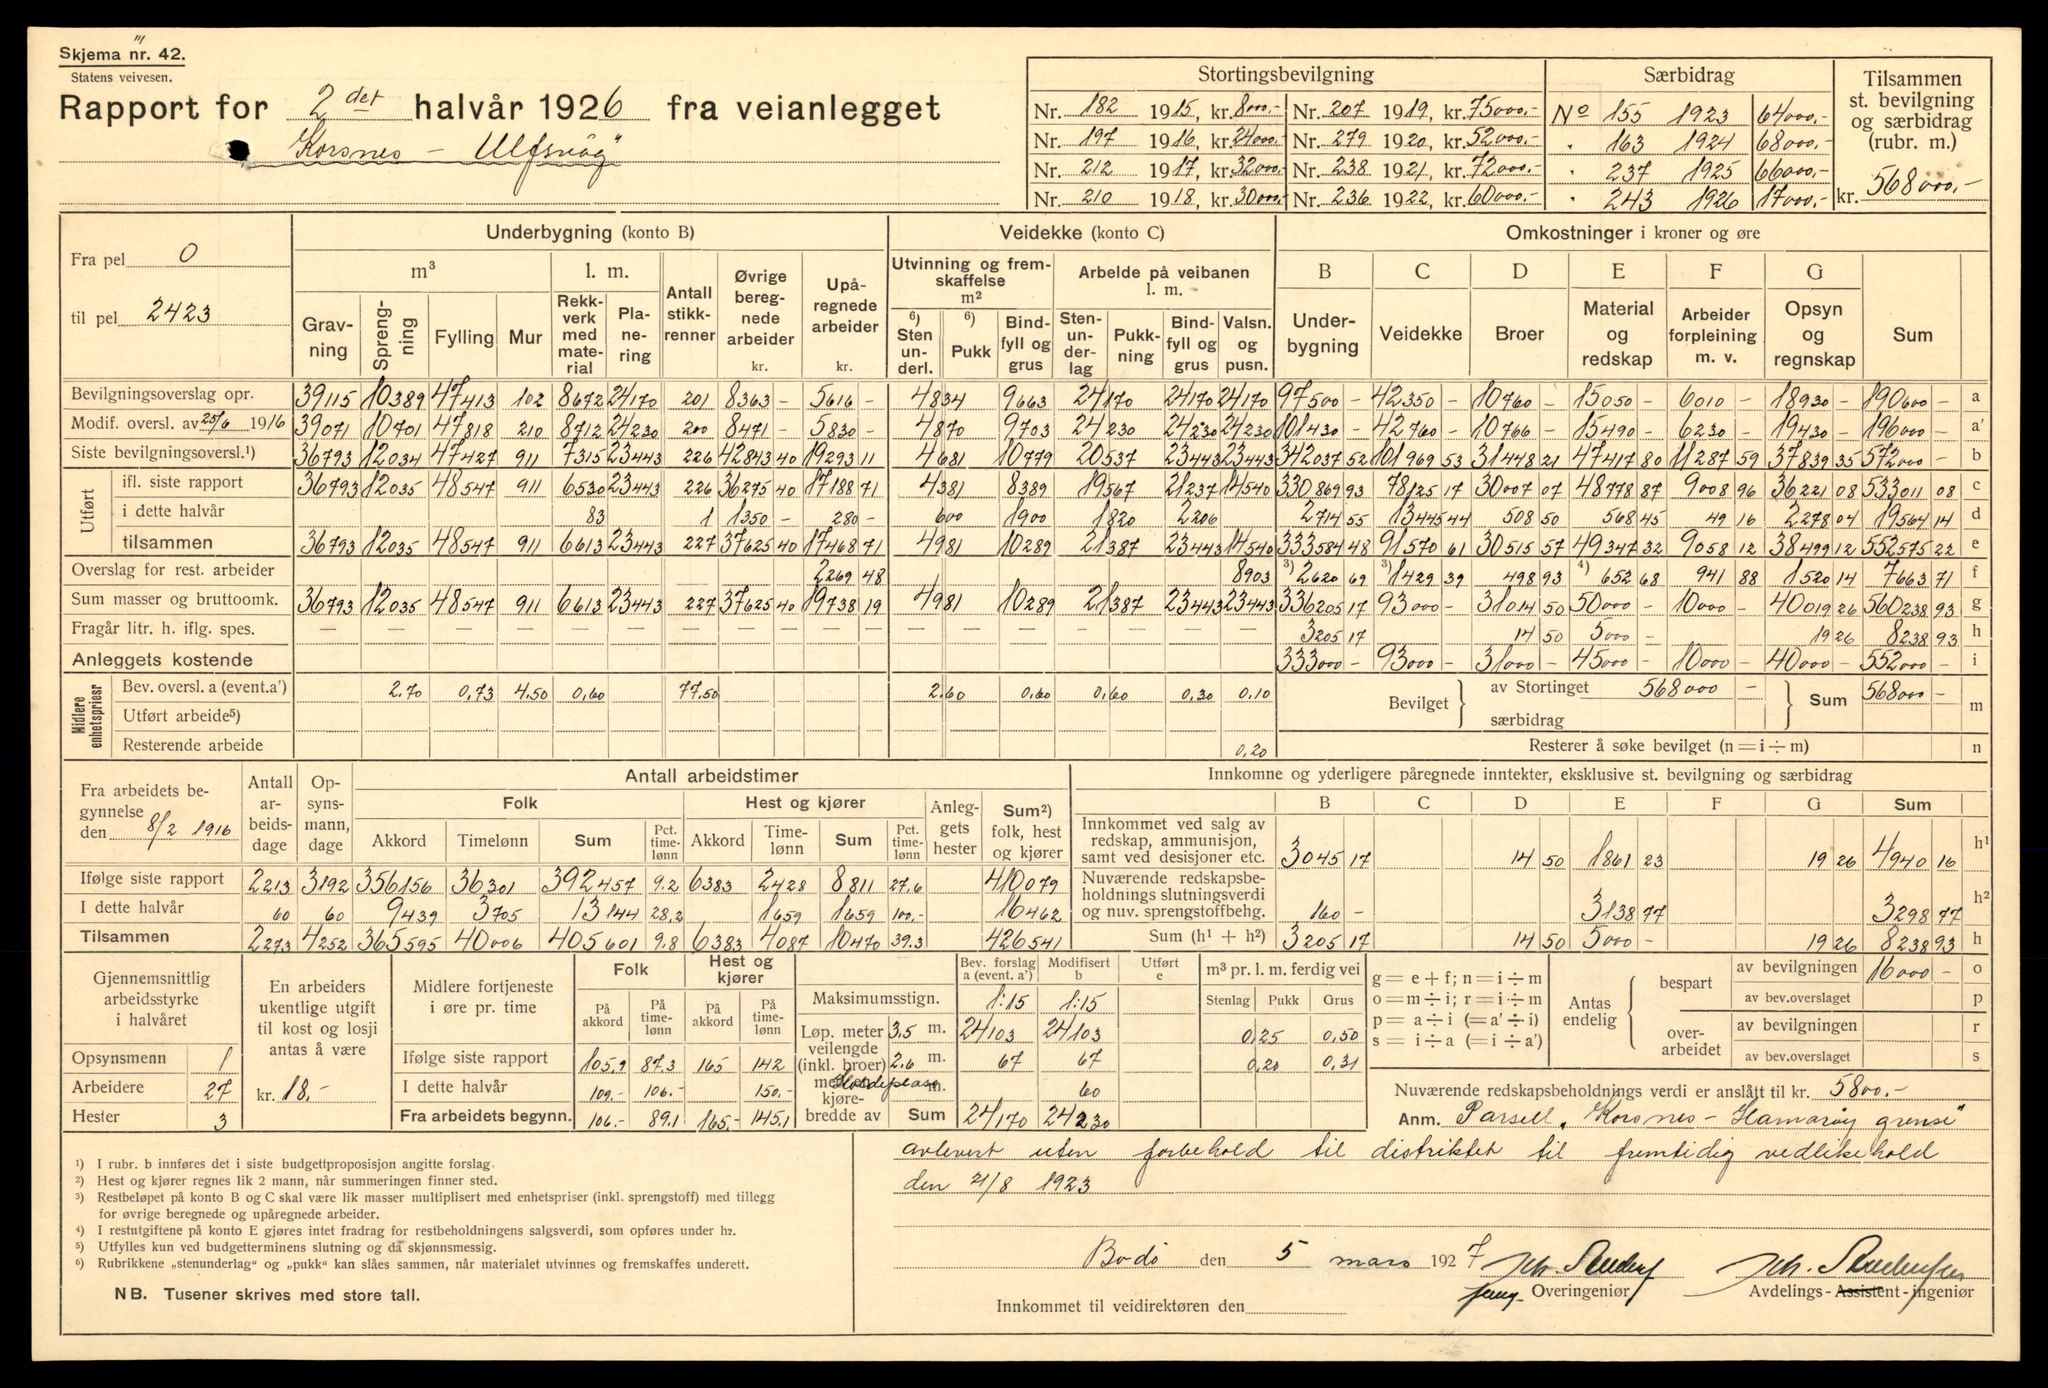 Skjema nr. 42.
Statens veivesen.
Rapport for 2det halvår 1926 fra veianlegget
"Korsnes — Ulfsvåg"
Stortingsbevilgning Særbidrag Tilsammen st. bevilgning og særbidrag (rubr. m.)
Nr. 182 1915, kr. 8000.- Nr. 207 1919, kr. 75000.- No 155 1923 64000.-
Nr. 197 1916, kr. 24000.- Nr. 279 1920, kr. 52000.- " 163 1924 68000.-
Nr. 212 1917, kr. 32000.- Nr. 238 1921, kr. 72000.- " 237 1925 66000.-
Nr. 210 1918, kr. 30000.- Nr. 236 1922, kr. 60000.- " 243 1926 17000.- kr. 568000.-
Fra pel 0
til pel 2423
Underbygning (konto B) Veidekke (konto C) Omkostninger i kroner og øre
m³ l. m. Antall stikkrenner Øvrige beregnede arbeider kr. Upåregnede arbeider kr. Utvinning og fremskaffelse m² Arbeide på veibanen l. m. B C D E F G
Gravning Sprengning Fylling Mur Rekkverk med material Planering ⁶) Sten underl. ⁶) Pukk Bindfyll og grus Stenunderlag Pukkning Bindfyll og grus Valsn. og pusn. Underbygning Veidekke Broer Material og redskap Arbeider forpleining m. v. Opsyn og regnskap Sum
Bevilgningsoverslag opr. 39115 10389 47413 102 8672 24170 201 8363 - 5616 - 4834 9663 24170 24170 24170 97500 - 42350 - 10760 - 15050 - 6010 - 18930 - 190600 - a
Modif. oversl. av 25/6 1916 39071 10701 47818 210 8712 24230 200 8471 - 5830 - 4870 9703 24230 24230 24230 101430 - 42760 - 10766 - 15490 - 6230 - 19430 - 196000 - a'
Siste bevilgningsoversl.¹) 36793 12034 47427 911 7315 23443 226 42843 40 19293 11 4681 10779 20537 23443 23443 342037 52 101969 53 31448 21 47417 80 11287 59 37839 35 572000 - b
Utført ifl. siste rapport 36793 12035 48547 911 6530 23443 226 36275 40 17188 71 4381 8389 19567 21237 14540 330869 93 78125 17 30007 07 48778 87 9008 96 36221 08 533011 08 c
i dette halvår 83 1 1350 - 280 - 600 1900 1820 2206 2714 55 13445 44 508 50 568 45 49 16 2278 04 19564 14 d
tilsammen 36793 12035 48547 911 6613 23443 227 37625 40 17468 71 4981 10289 21387 23443 14540 333584 48 91570 61 30515 57 49347 32 9058 12 38499 12 552575 22 e
Overslag for rest. arbeider 2269 48 8903 ³) 2620 69 ³) 1429 39 498 93 ⁴) 652 68 941 88 1520 14 7663 71 f
Sum masser og bruttoomk. 36793 12035 48547 911 6613 23443 227 37625 40 19738 19 4981 10289 21387 23443 23443 336205 17 93000 - 31014 50 50000 - 10000 - 40019 26 560238 93 g
Fragår litr. h. iflg. spes. — — — — — — — — — — — — — — 3205 17 14 50 5000 - 19 26 8238 93 h
Anleggets kostende 333000 - 93000 - 31000 - 45000 - 10000 - 40000 - 552000 - i
Midlere enhetspriesr Bev. oversl. a (event. a') 2.70 0,73 4.50 0,60 77.50 2.60 0.60 0,60 0,30 0,10 Bevilget av Stortinget 568000 - Sum 568000 - m
Utført arbeide⁵) særbidrag
Resterende arbeide 0,20 Resterer å søke bevilget (n = i ÷ m) n
Fra arbeidets begynnelse den 8/2 1916
Antall arbeidsdage Opsynsmann, dage Antall arbeidstimer Innkomne og yderligere påregnede inntekter, eksklusive st. bevilgning og særbidrag
Folk Hest og kjører Anleggets hester Sum²) folk, hest og kjører B C D E F G Sum
Akkord Timelønn Sum Pct. timelønn Akkord Timelønn Sum Pct. timelønn
Innkommet ved salg av redskap, ammunisjon, samt ved desisjoner etc. 3045 17 14 50 1861 23 19 26 4940 16 h¹
Ifølge siste rapport 2213 3192 356156 36301 392457 9.2 6383 2428 8811 27.6 410079
Nuværende redskapsbeholdnings slutningsverdi og nuv. sprengstoffbehg. 160 - 3138 77 3298 77 h²
I dette halvår 60 60 9439 3705 13144 28.2 1659 1659 100.- 16462
Tilsammen 2273 4252 365595 40006 405601 9.8 6383 4087 10470 39.3 426541
Sum (h¹ + h²) 3205 17 14 50 5000 - 19 26 8238 93 h
Gjennemsnittlig arbeidsstyrke i halvåret
Opsynsmenn 1
Arbeidere 27
Hester 3
En arbeiders ukentlige utgift til kost og losji antas å være
kr. 18.-
Midlere fortjeneste i øre pr. time Folk Hest og kjører
På akkord På timelønn På akkord På timelønn
Ifølge siste rapport 105.9 87.3 165 142
I dette halvår 109.- 106.- 150.-
Fra arbeidets begynn. 106.- 89.1 165.- 145.1
Bev. forslag a (event. a') Modifisert b Utført e
Maksimumsstign. 1:15 1:15
Løp. meter veilengde (inkl. broer) med en kjørebredde av
3,5 m. 24103 24103
2.6 m. 67 67
m. 60
Sum 24170 24230
m³ pr. l. m. ferdig vei
Stenlag Pukk Grus
0,25 0,50
0,20 0,31
g = e + f; n = i ÷ m
o = m ÷ i; r = i ÷ m
p = a ÷ i (= a' ÷ i)
s = i ÷ a (= i ÷ a')
Antas endelig bespart av bevilgningen 16000 - o
av bev.overslaget p
overarbeidet av bevilgningen r
av bev.overslaget s
Nuværende redskapsbeholdnings verdi er anslått til kr. 5800.-
Anm. Parsell "Korsnes — Hamarøy grense"
avlevert uten forbehold til distriktet til fremtidig vedlikehold
den 21/8 1923
¹) I rubr. b innføres det i siste budgettproposisjon angitte forslag.
²) Hest og kjører regnes lik 2 mann, når summeringen finner sted.
³) Restbeløpet på konto B og C skal være lik masser multiplisert med enhetspriser (inkl. sprengstoff) med tillegg
for øvrige beregnede og upåregnede arbeider.
⁴) I restutgiftene på konto E gjøres intet fradrag for restbeholdningens salgsverdi, som opføres under h2.
⁵) Utfylles kun ved budgetterminens slutning og da skjønnsmessig.
⁶) Rubrikkene „stenunderlag" og „pukk" kan slåes sammen, når materialet utvinnes og fremskaffes underett.
NB. Tusener skrives med store tall.
Bodö den 5 mars 1927
Overingeniør Avdelings-Assistent-ingeniør
Innkommet til veidirektøren den